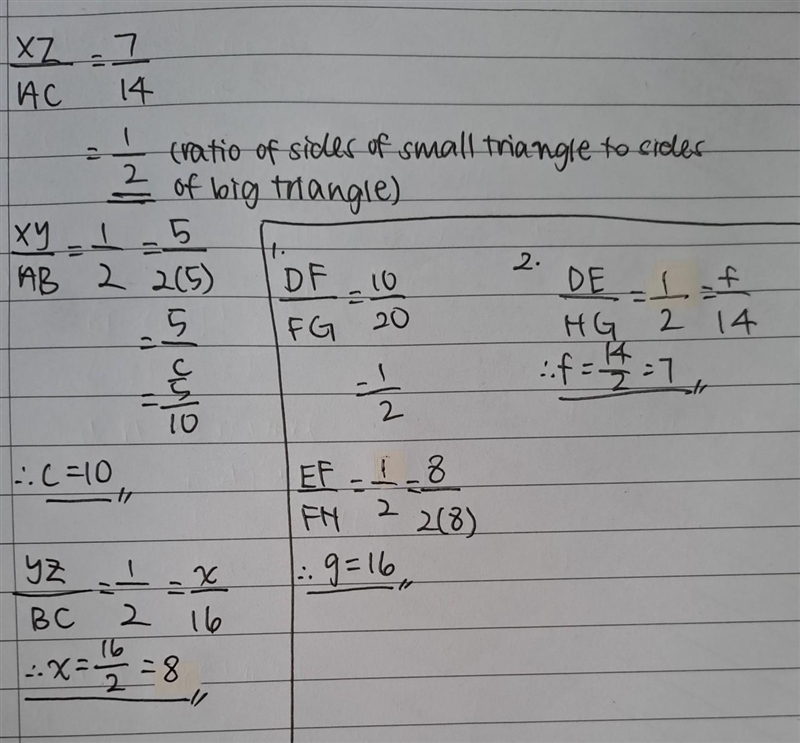 XZ/AC = 7/14
= 1/2 (ratio of sides of small triangle to sides of big triangle)
XY/AB = 1/2 = 5/2(5)
= 5/c
= 5/10
∴ c = 10
YZ/BC = 1/2 = x/16
∴ x = 16/2 = 8
1.
DF/FG = 10/20
= 1/2
EF/FH = 1/2 = 8/2(8)
∴ g = 16
2.
DE/HG = 1/2 = f/14
∴ f = 14/2 = 7